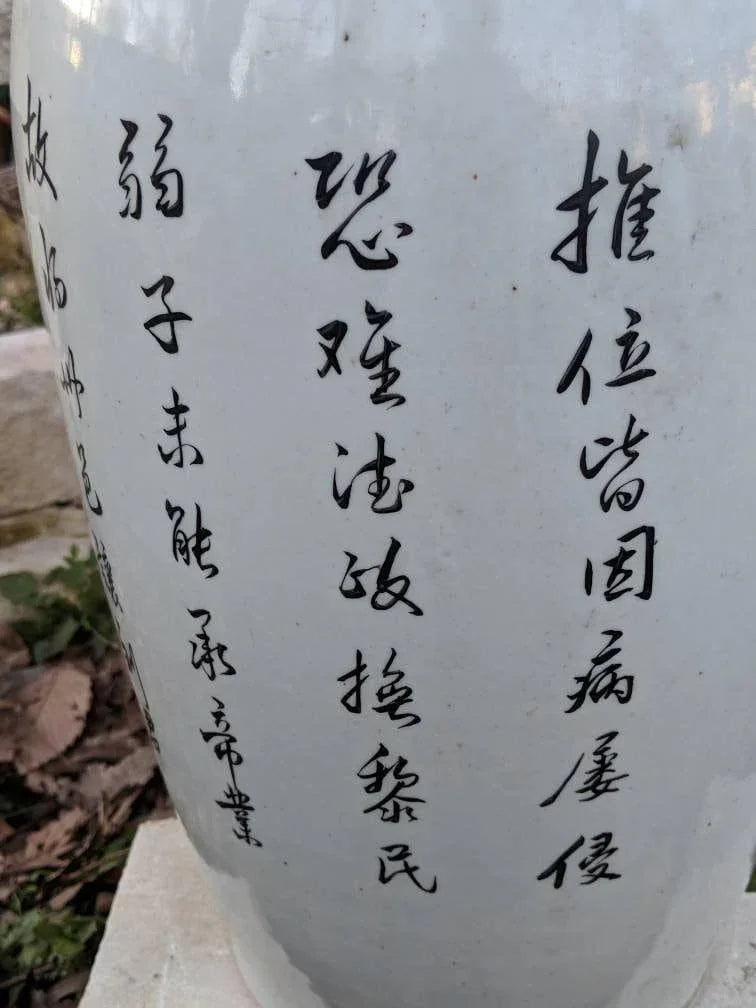 推位皆因病屡侵
恐难德政撫黎民
弱子未能承帝業
故将州邑讓